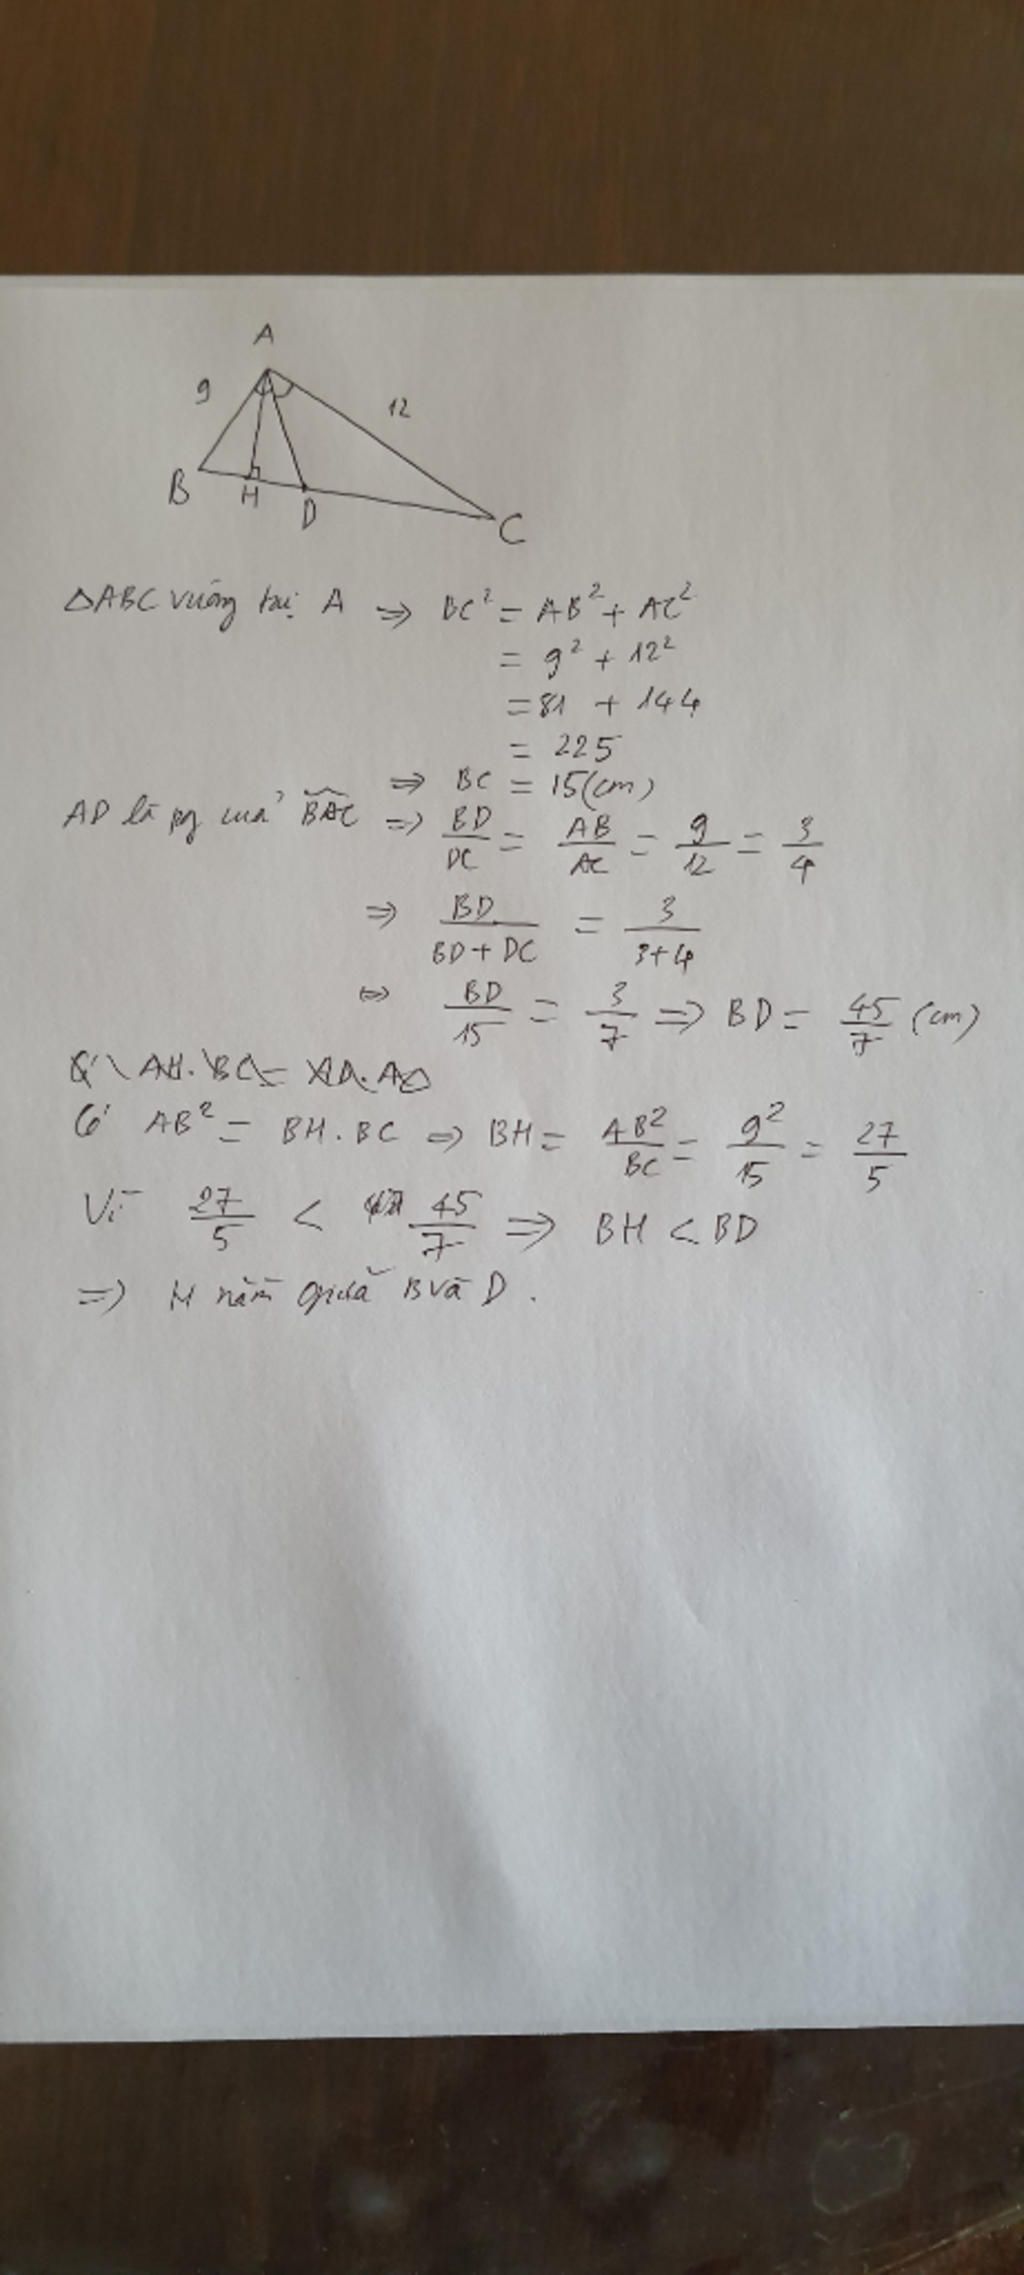 A
9
12
B
H
D
C
△ABC vuông tại A ⇒ BC² = AB² + AC²
= 9² + 12²
= 81 + 144
= 225
⇒ BC = 15 (cm)
AD là pg của BAC ⇒ BD/DC = AB/AC = 9/12 = 3/4
⇒ BD/(BD + DC) = 3/(3+4)
⇔ BD/15 = 3/7 ⇒ BD = 45/7 (cm)
Có AB² = BH . BC ⇒ BH = AB²/BC = 9²/15 = 27/5
Vì 27/5 < 45/7 ⇒ BH < BD
⇒ H nằm giữa B và D .